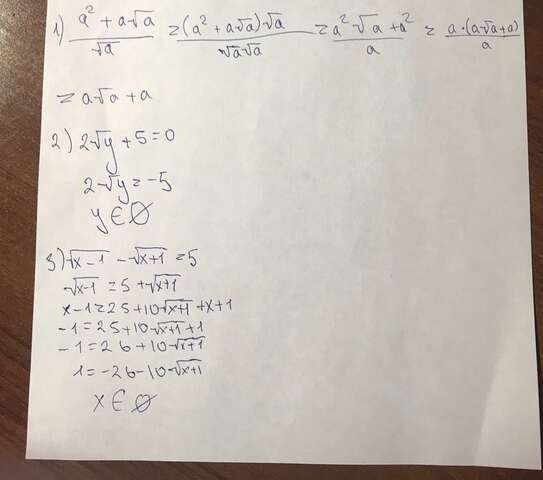 1) (a² + a√a)/√a = ((a² + a√a)·√a)/(√a√a) = (a²√a + a²)/a = (a·(a√a + a))/a
= a√a + a
2) 2√y + 5 = 0
2√y = -5
y ∈ ∅
3) √(x-1) - √(x+1) = 5
√(x-1) = 5 + √(x+1)
x-1 = 25 + 10√(x+1) + x+1
-1 = 25 + 10√(x+1) + 1
-1 = 26 + 10√(x+1)
1 = -26 - 10√(x+1)
x ∈ ∅